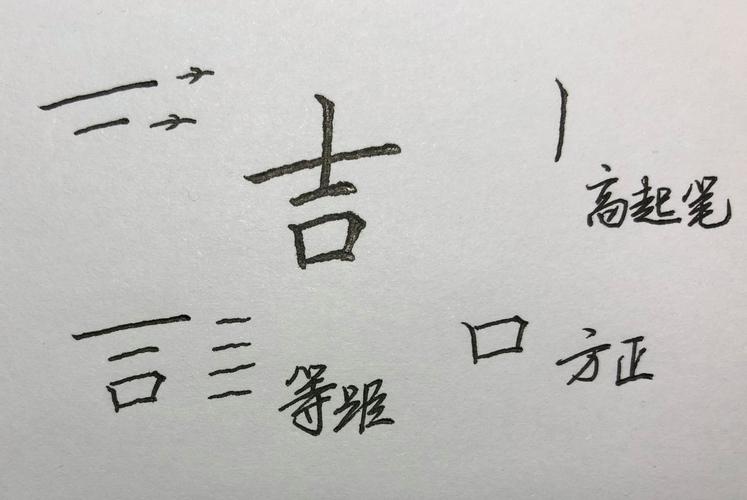 吉
高起笔
等距
口 方正